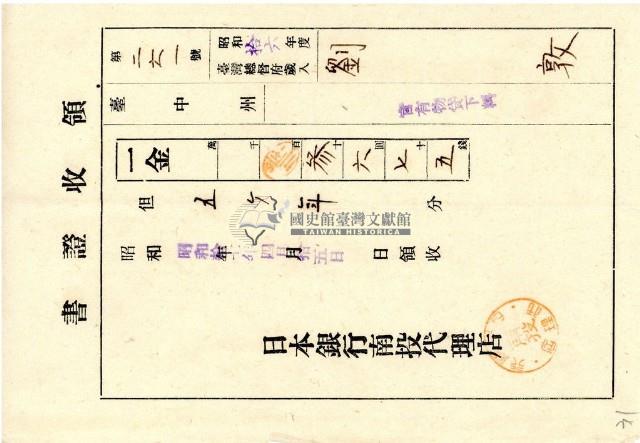 領收證書
第二六一號
昭和拾六年度
臺灣總督府歲入
劉 敦
臺中州
官有物貸下料
一金
萬 千 百 十 圓 十 錢
參 六 七 五
但 五 年 分
國史館臺灣文獻館
TAIWAN HISTORICA
昭和 年 月 日領收
四月拾五日
日本銀行南投代理店